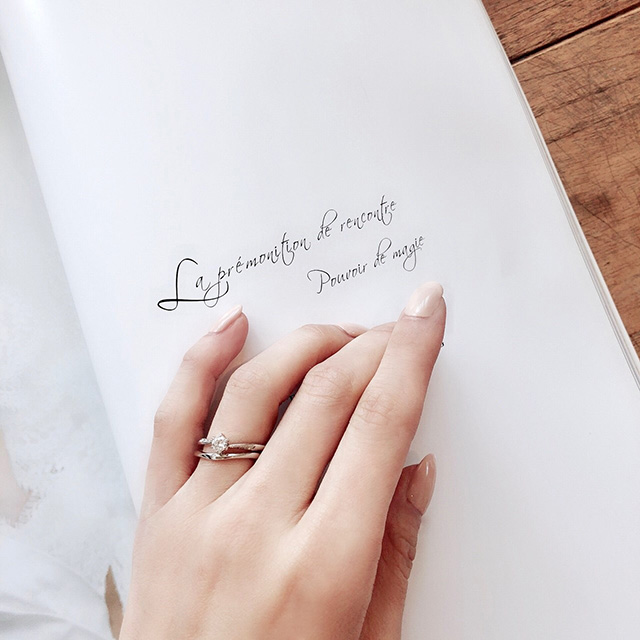 La prémonition de rencontre
Pouvoir de magie